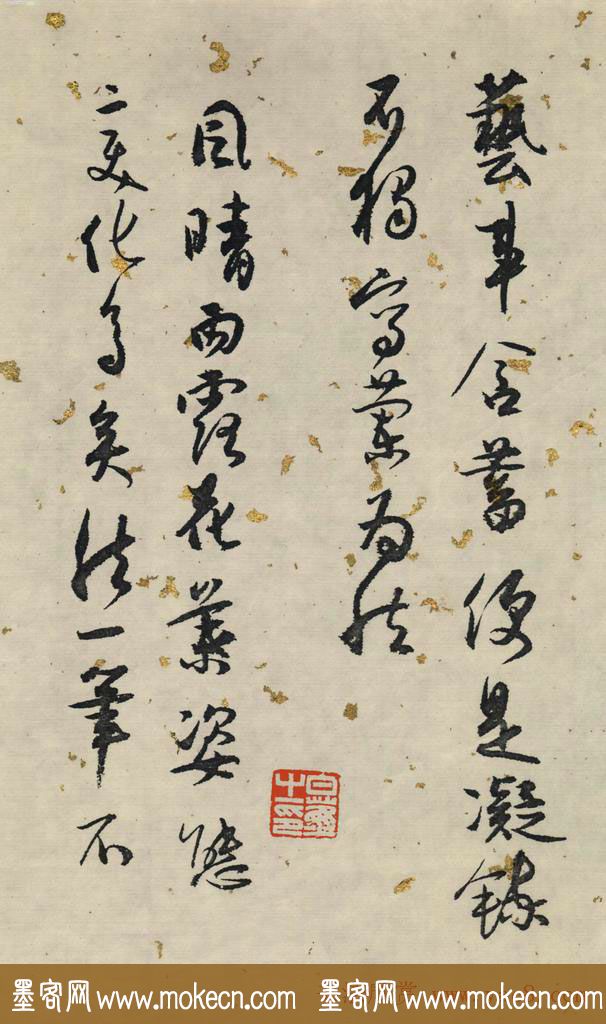 藝事含蓄便是凝鍊
不獨寫蘭為然
風晴雨露花葉姿態
之變化多矣然一筆不
墨客网 www.mokecn.com 墨客网 www.mokecn.com